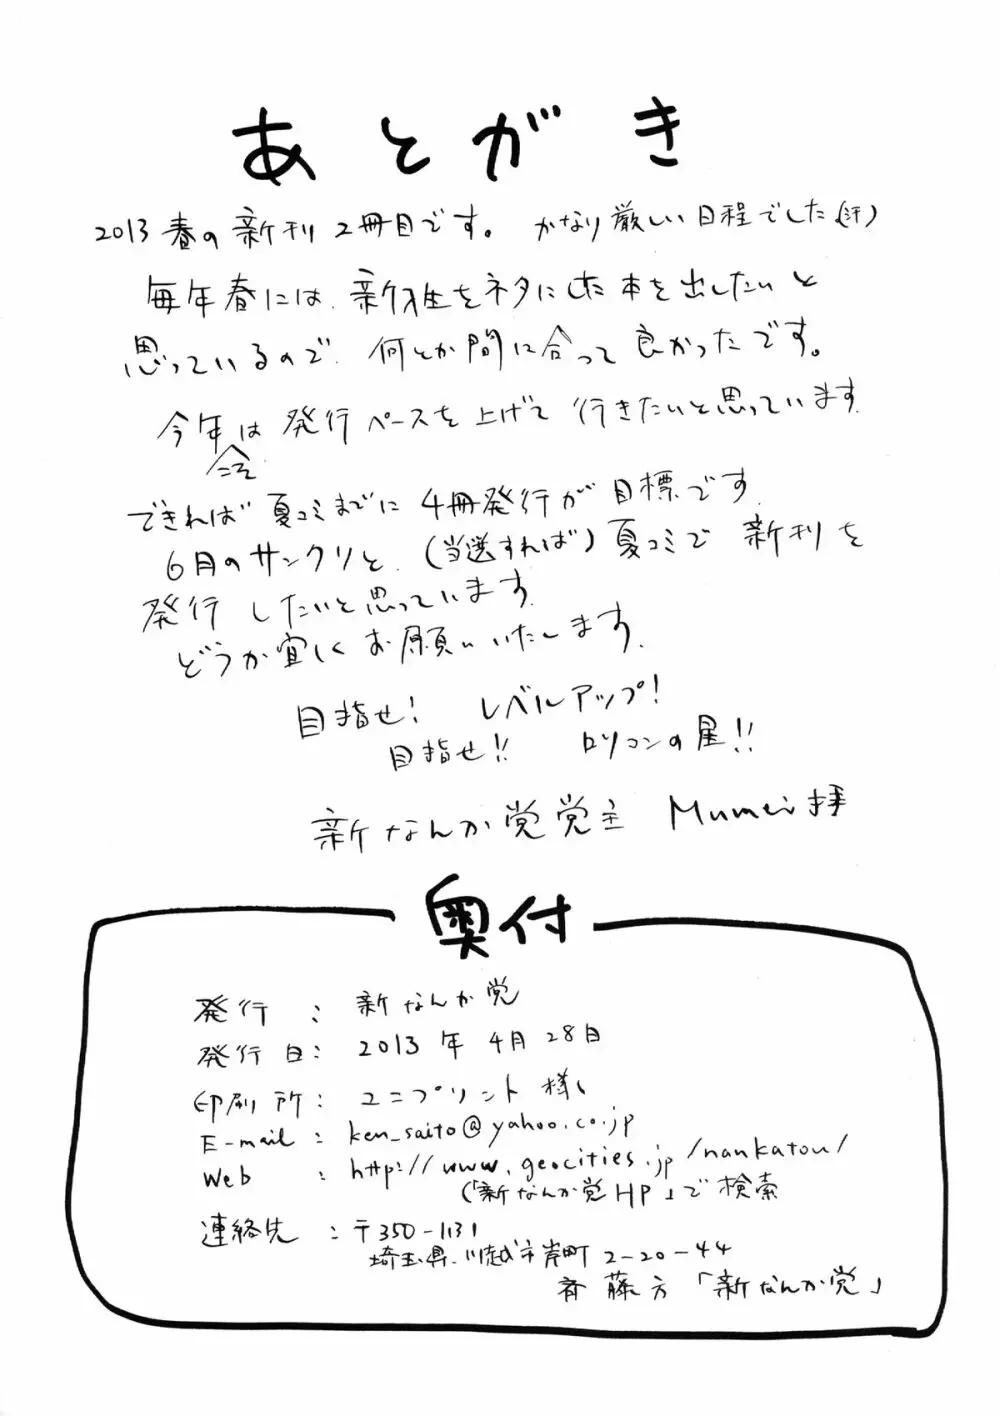 あとがき
2013春の新刊2冊目です。かなり厳しい日程でした(汗)
毎年春には、新入生をネタにした本を出したいと
思っているので、何とか間に合って良かったです。
今年こそは発行ペースを上げて行きたいと思っています。
できれば夏コミまでに4冊発行が目標です。
6月のサンクリと、(当選すれば)夏コミで新刊を
発行したいと思っています。
どうか宜しくお願いいたします。
目指せ! レベルアップ!
目指せ!! ロリコンの星!!
新なんか党党主 Mumei 拝
奥付
発行 : 新なんか党
発行日: 2013年4月28日
印刷所: ユニプリント様
E-mail : ken_saito@yahoo.co.jp
Web : http://www.geocities.jp/nankatou/
(「新なんか党HP」で検索
連絡先 : 〒350-1131
埼玉県川越市岸町2-20-44
斉藤方「新なんか党」